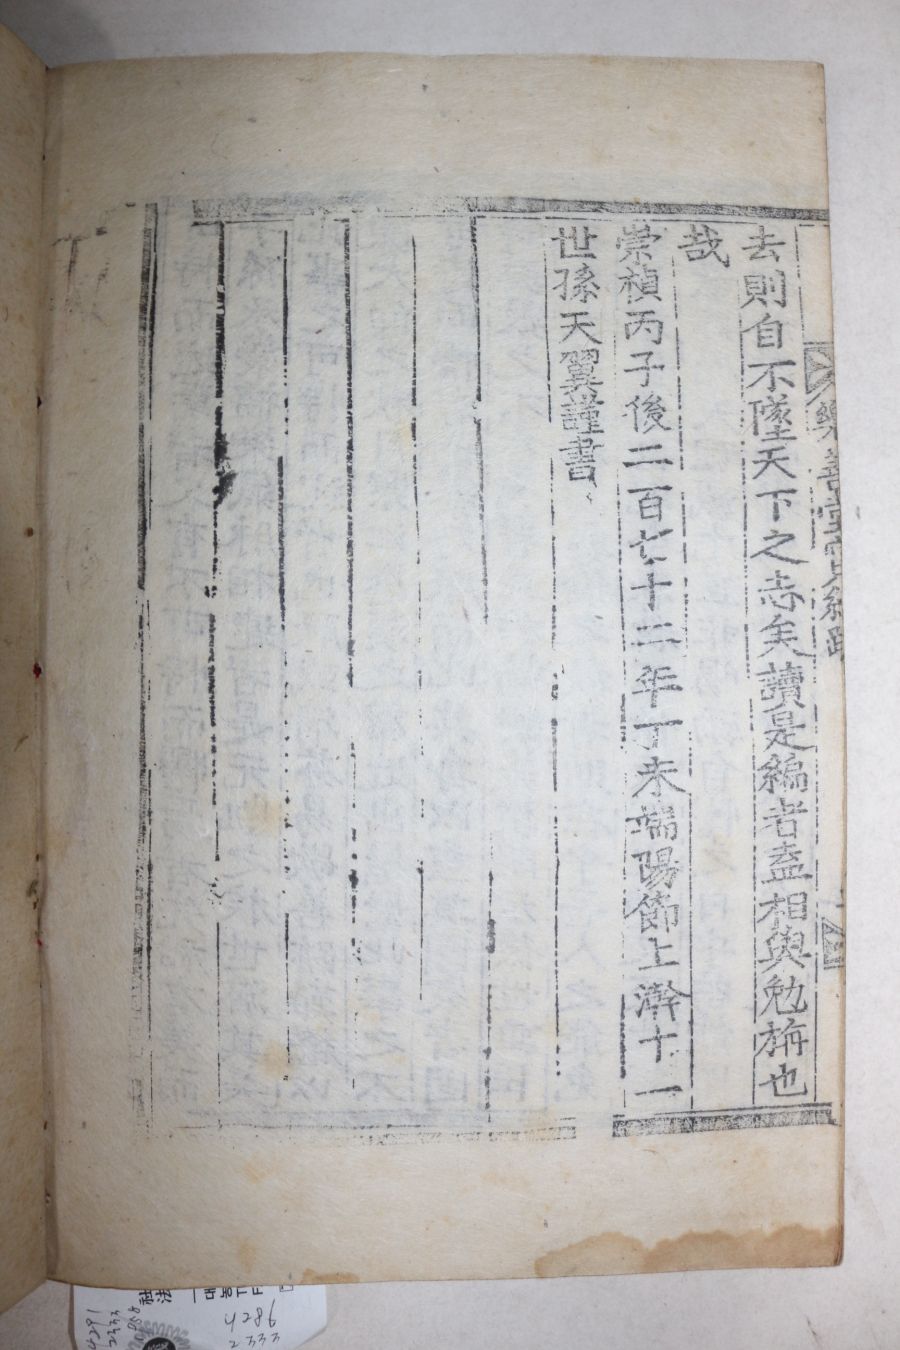 去則自不墜天下之志矣讀是編者盍相與勉旃也
哉
崇禎丙子後二百七十二年丁未端陽節上澣十一
世孫天翼謹書
4286
2333
4291
2333